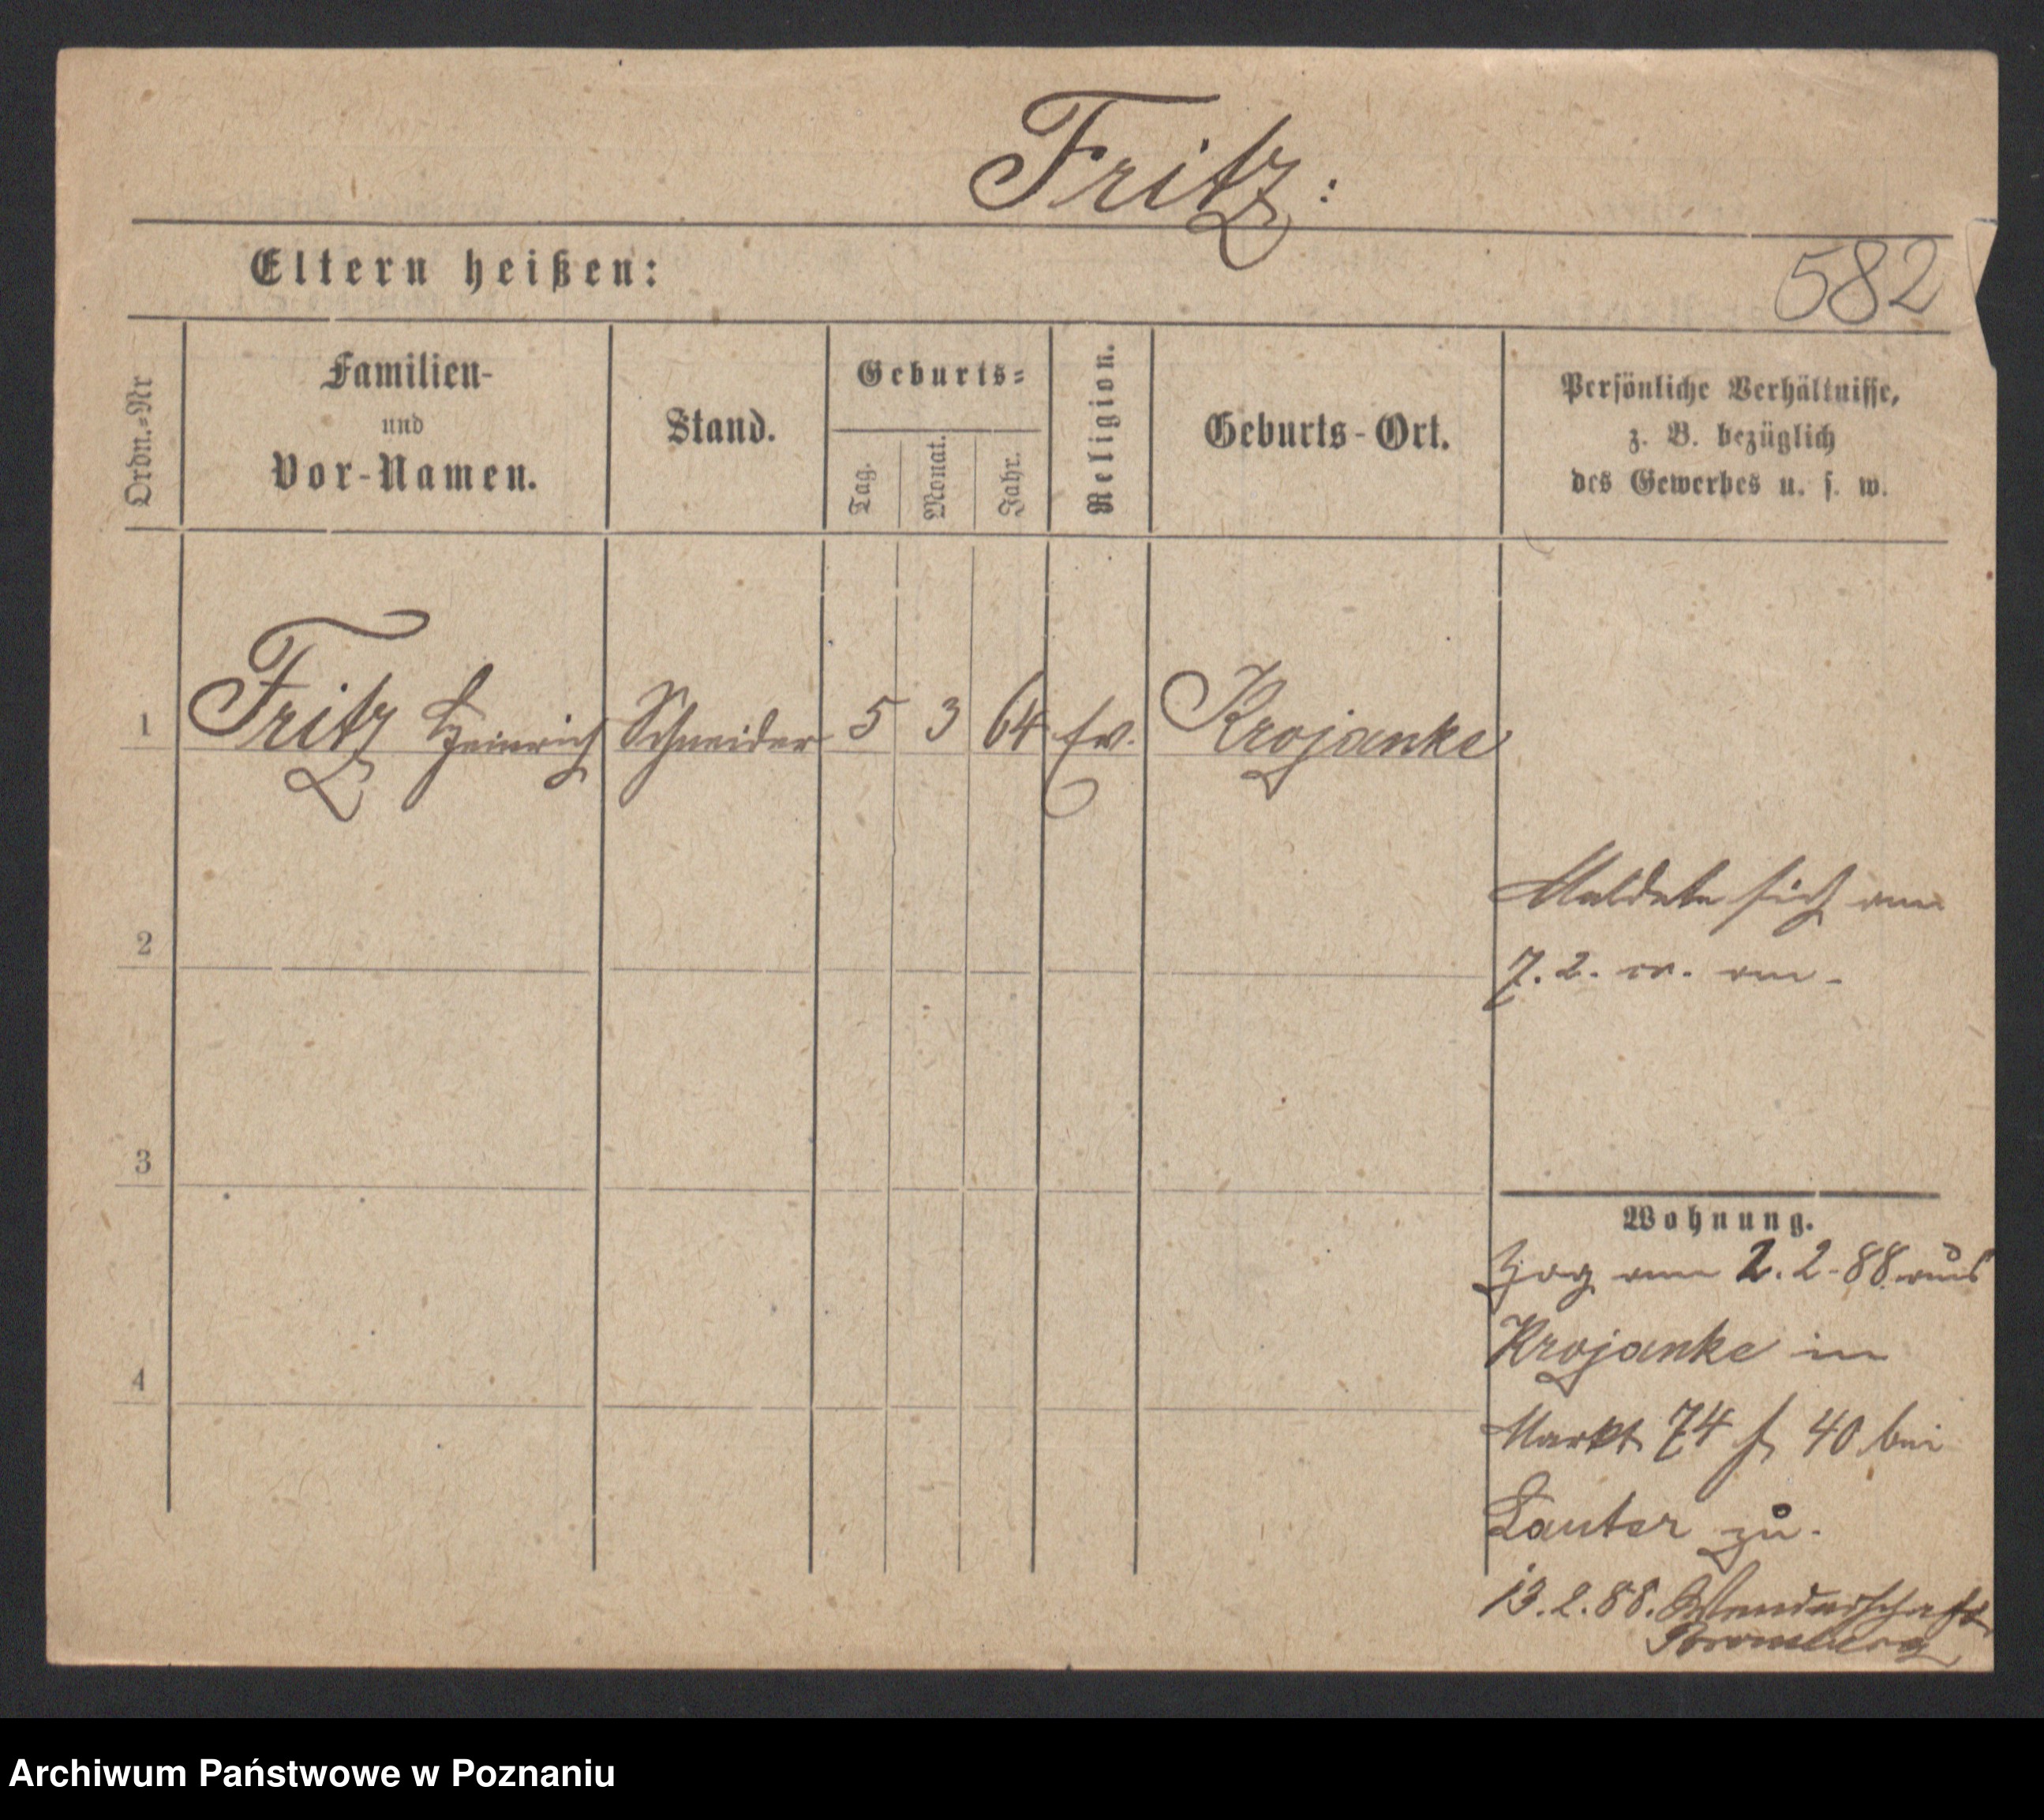 Fritz:
Eltern heißen:
582
Ordn.=Nr
Familien-
und
Vor-Namen.
Stand.
Geburts=
Tag.
Monat.
Jahr.
Religion.
Geburts-Ort.
Persönliche Verhältnisse,
z. B. bezüglich
des Gewerbes u. s. w.
1 Fritz Heinrich Schneider 5 3 64 Ev. Krojanke
Meldete sich am
7. 2. cr. an.
2
3
4
Wohnung.
Zog am 2. 2. 88. aus
Krojanke in
Markt 74 f 40 bei
Lauter zu.
13. 2. 88. Wanderschaft
Bromberg
Archiwum Państwowe w Poznaniu